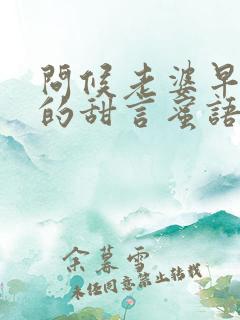 問候老婆早
的甜言蜜語
余暮雪
未经同意禁止转载